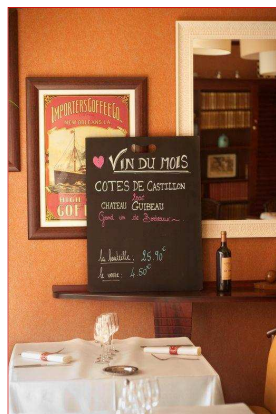 IMPORTERS COFFEE CO.
NEW ORLEANS, LA.
HIGH
COF
VIN DU MOIS
COTES DE CASTILLON
CHATEAU GUIBEAU
Grand vin de Bordeaux
la bouteille : 25.90€
le verre : 4.50€